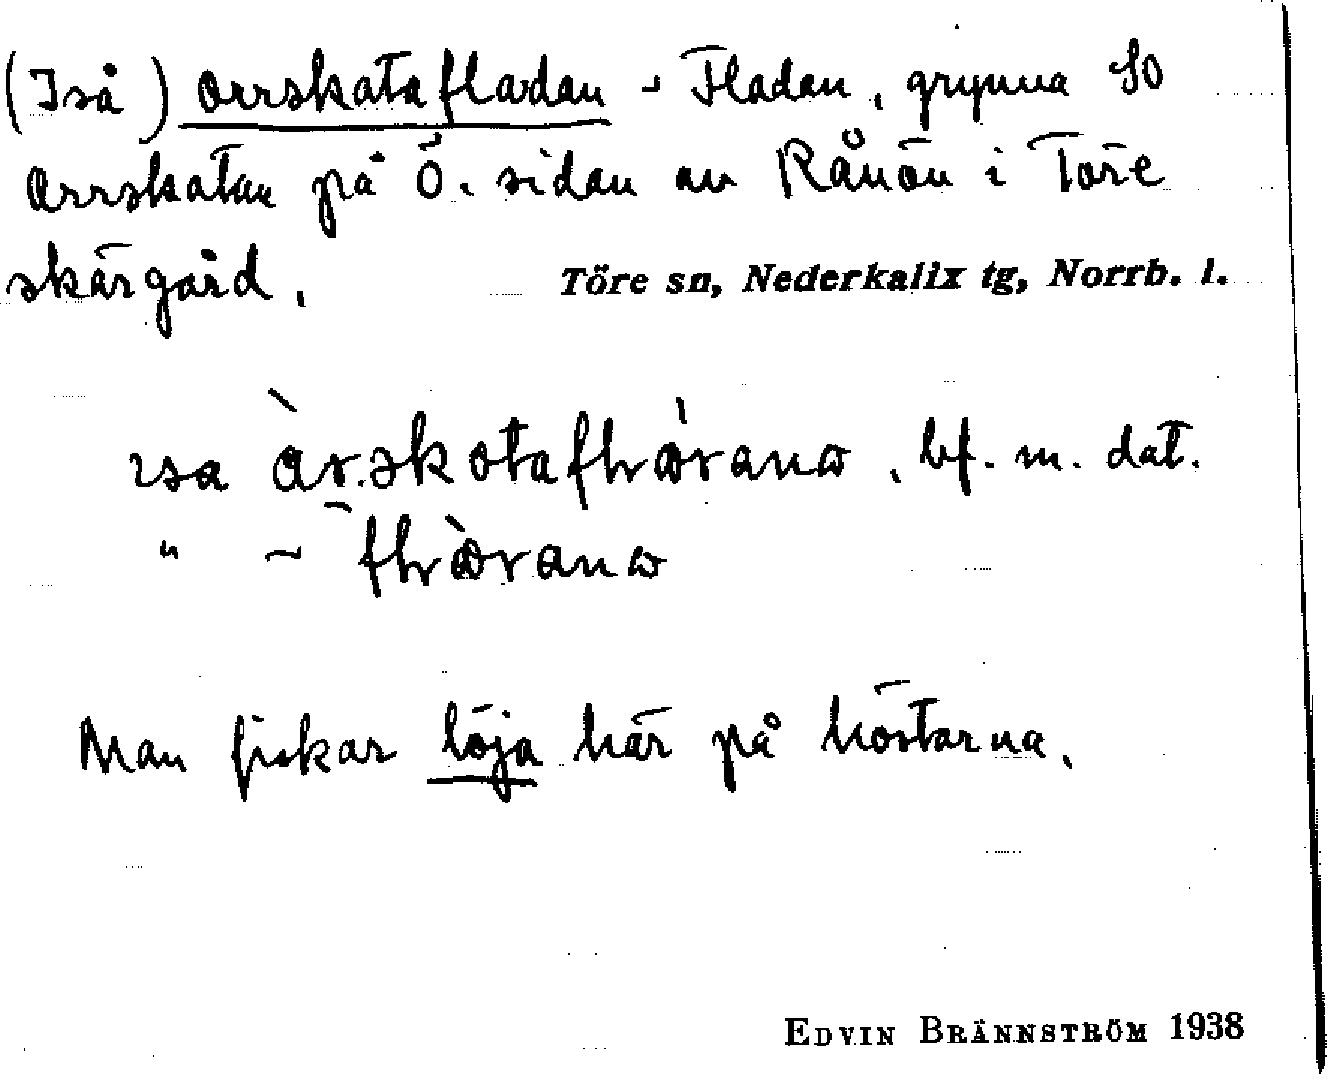 (Iså) Orrskatafladan - Fladan, grynna SO
Orrskatan på Ö. sidan av Rånön i Töre
skärgård.
Töre sn, Nederkalix tg, Norrb. l.
bf. m. dat.
" –
Man fiskar löja här på höstarna.
EDVIN BRÄNNSTRÖM 1938